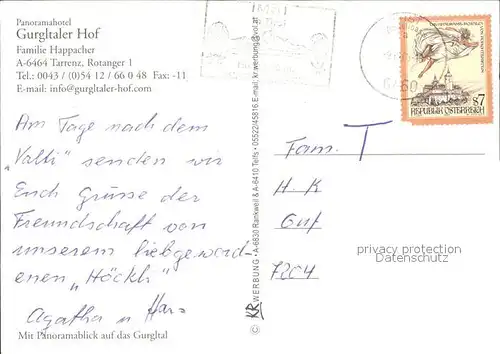 Panoramahotel
Gurgltaler Hof
Familie Happacher
A-6464 Tarrenz, Rotanger 1
Tel.: 0043 / (0)54 12 / 66 0 48 Fax: -11
E-mail: info@gurgltaler-hof.com
Am Tage nach dem
„Valti" senden wir
Euch Grüsse der
Freundschaft von
unserem liebgeword-
enen „Höckli"
Agatha u Hans
Mit Panoramablick auf das Gurgltal
© KR WERBUNG • A-6830 Rankweil & A-6410 Telfs • 05522/45816 E-mail: kr.werbung@vol.at
6460
REPUBLIK ÖSTERREICH
S7
Fam. T
H K
Gut
7204
privacy protection
Datenschutz